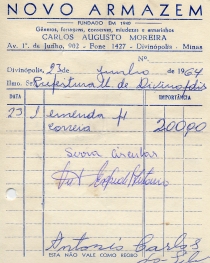 NOVO ARMAZEM
FUNDADO EM 1940
Gêneros, ferragens, conservas, miudezas e armarinhos
CARLOS AUGUSTO MOREIRA
Av. 1º de Junho, 902 - Fone 1427 - Divinópolis - Minas
Nº
Divinópolis, 23 de Junho de 1964
Ilmo. Sr. Prefeitura M. de Divinopolis
DATA IMPORTÂNCIA
23 1 emenda p/ 200,00
correia
Serra circular
Antonio Carlos
ESTA NÃO VALE COMO RECIBO